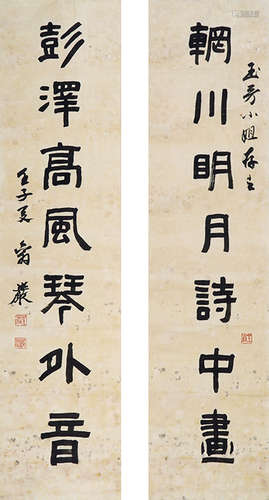 輞川明月詩中畫
玉芳小姐存玩
彭澤高風琴外音
壬子夏
嚴